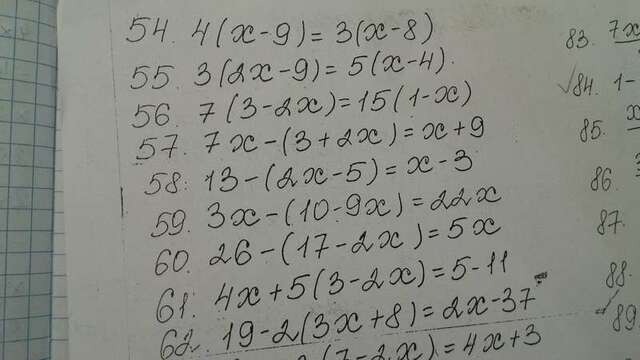 54. 4(x-9)=3(x-8)
55. 3(2x-9)=5(x-4).
56 7(3-2x)=15(1-x)
57. 7x-(3+2x)=x+9
58. 13-(2x-5)=x-3
59. 3x-(10-9x)=22x
60. 26-(17-2x)=5x
61. 4x+5(3-2x)=5-11
62. 19-2(3x+8)=2x-37
(7-2x)=4x+3
83. 7x
√84. 1
85. x
86.
87.
88.
89